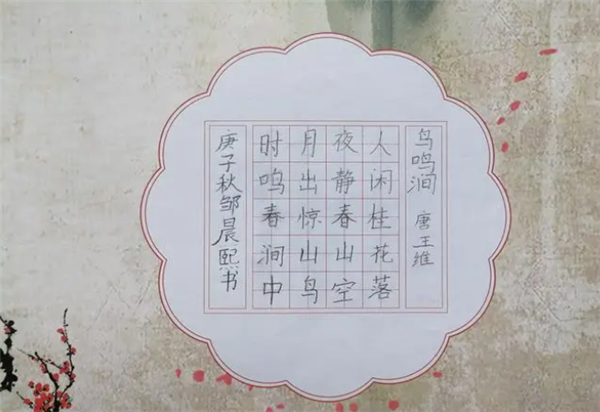 鸟鸣涧 唐 王维
人闲桂花落
夜静春山空
月出惊山鸟
时鸣春涧中
庚子秋邹晨熙书